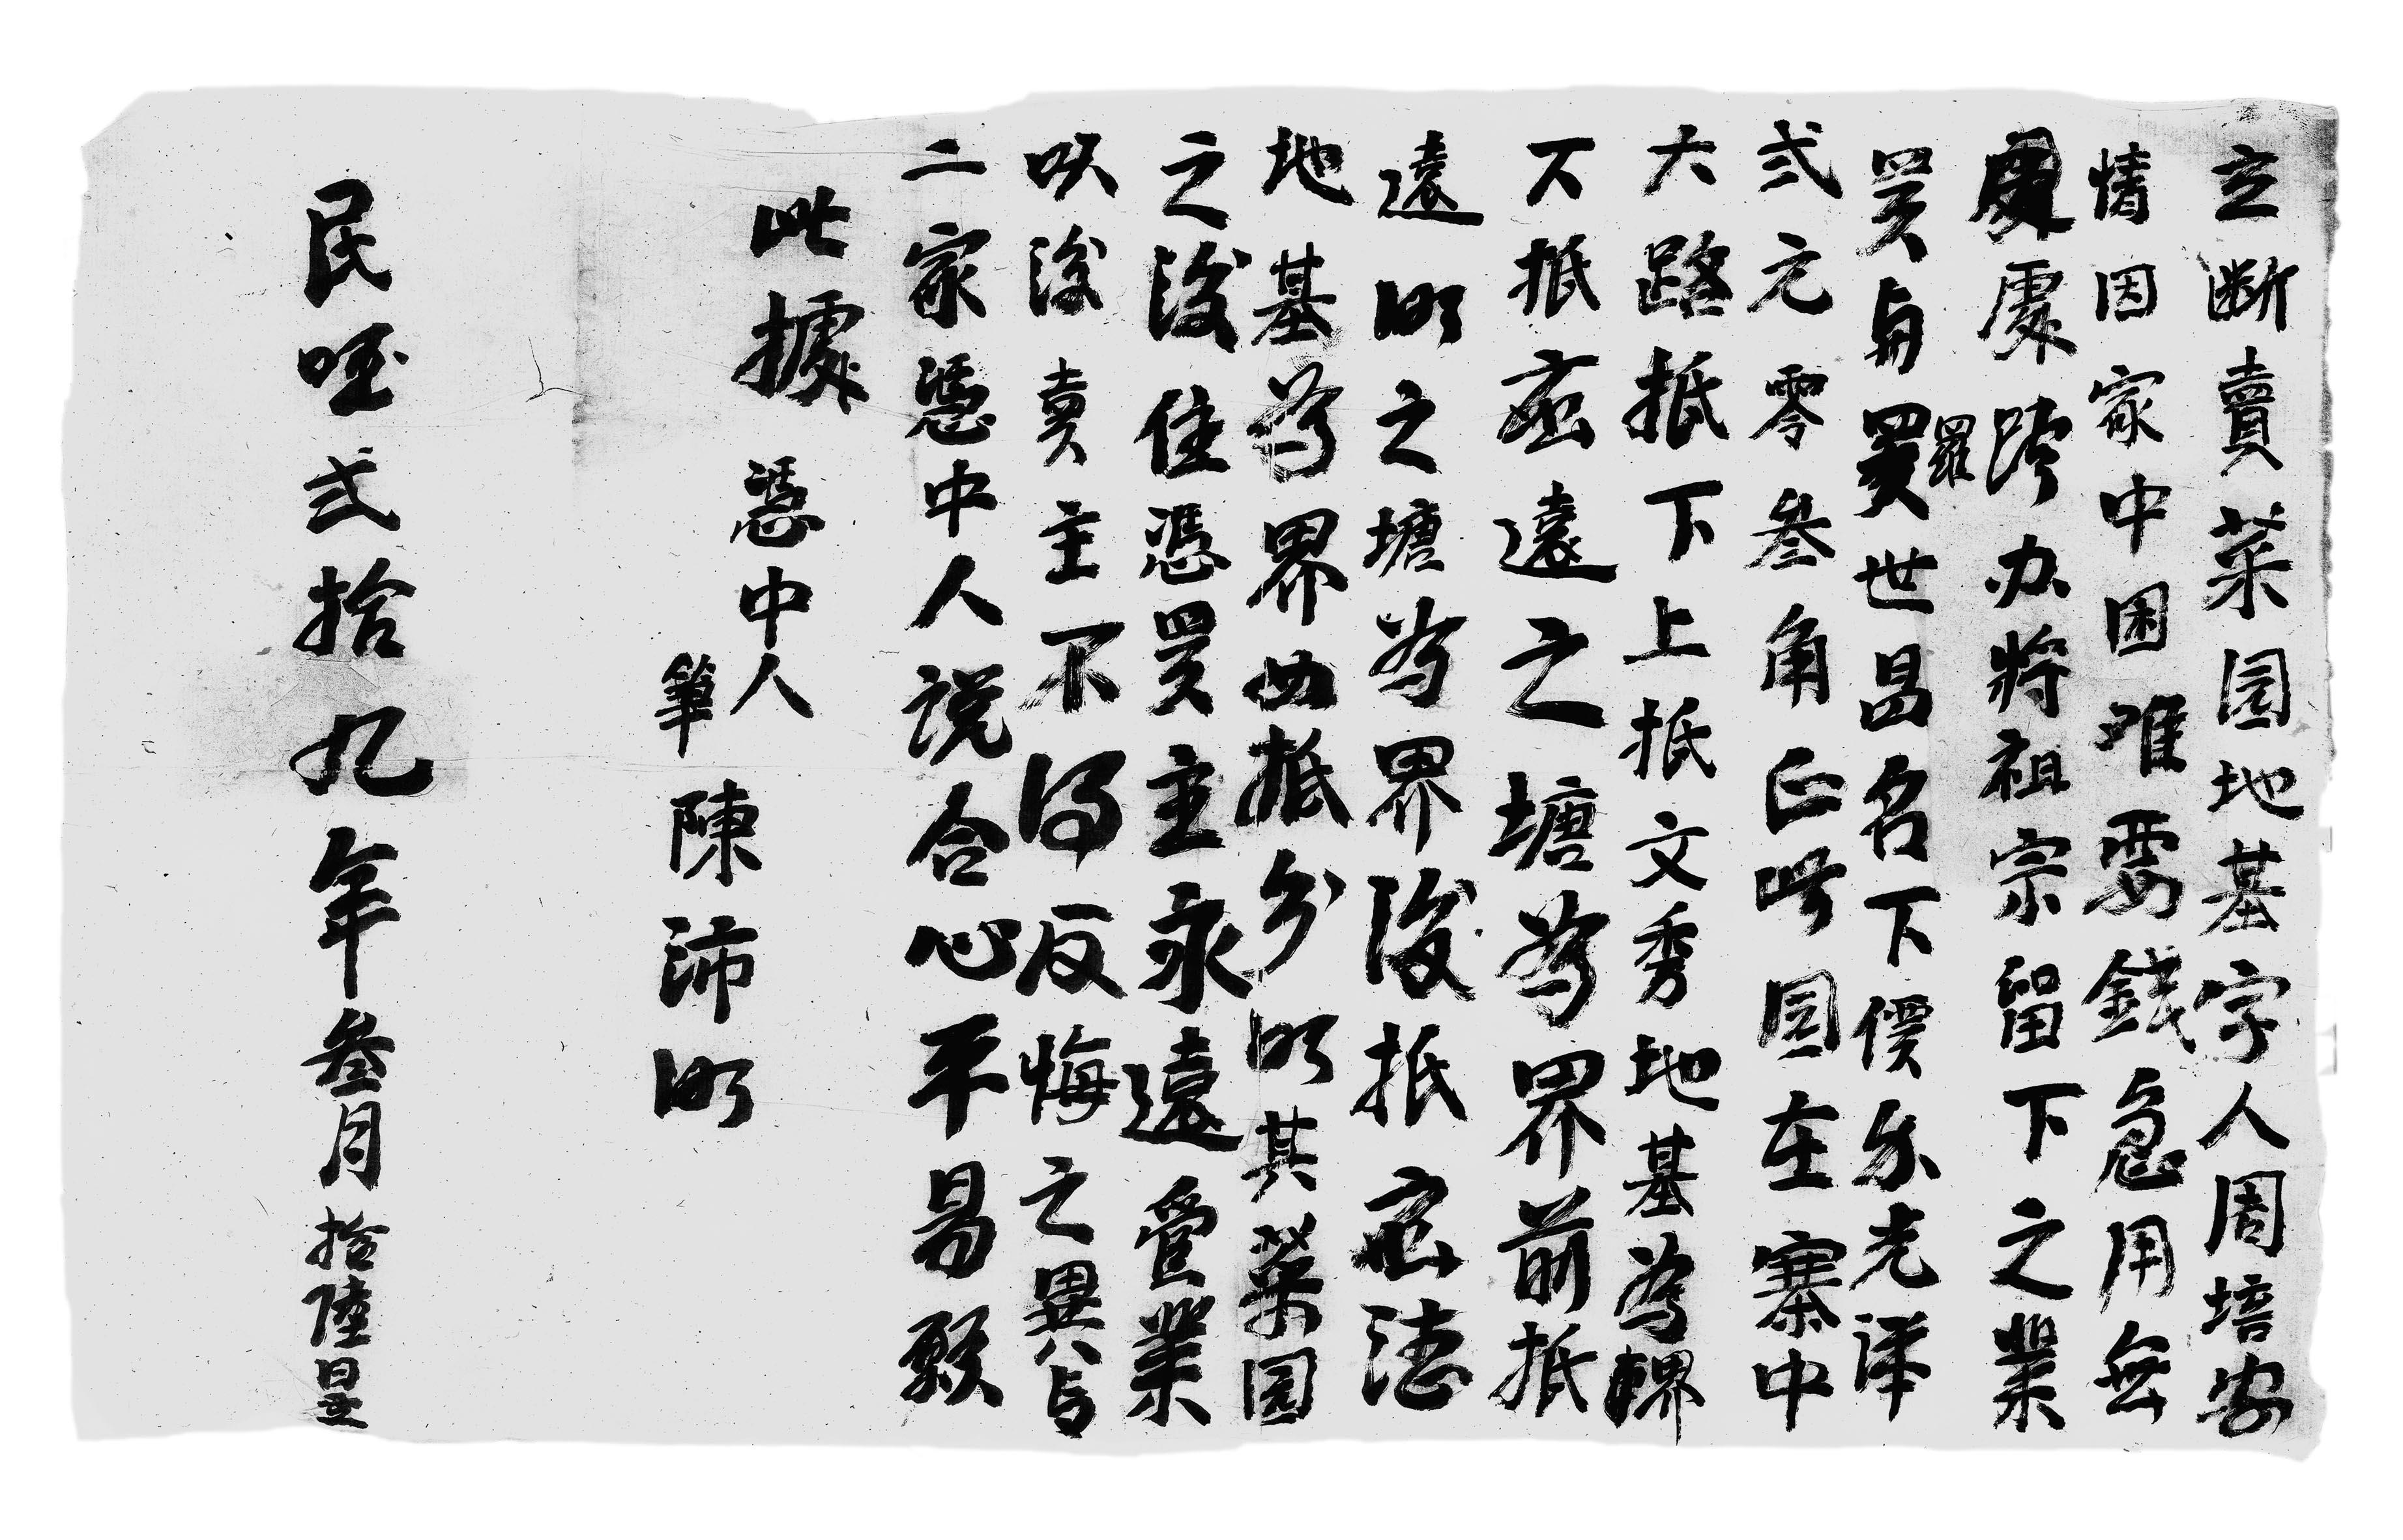 立断賣菜园地基字人周培安
情因家中困难要錢急用無
處跨办將祖宗留下之業
買与羅世昌名下價乐光洋
弍元零叁角正此园在寨中
大路抵下上抵文秀地基為界
下抵 遠之塘為界前抵
遠明之塘為界後抵 德
地基為界 抵 明其菜园
之後任憑買主永遠管業
以後賣主不得反悔之異与
二家憑中人説合心平易
此據 憑中人
筆陳沛明
民国弍拾九年叁月拾陸日